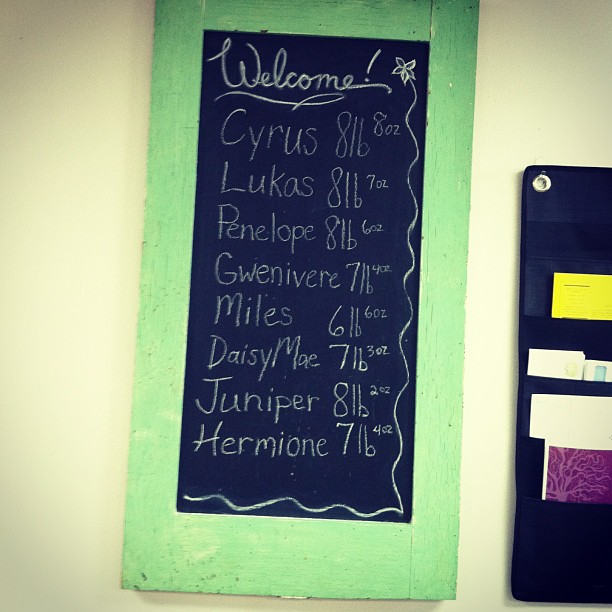 Welcome!
Cyrus 8lb 8oz
Lukas 8lb 7oz
Penelope 8lb 6oz
Gwenivere 7lb 4oz
Miles 6lb 6oz
DaisyMae 7lb 3oz
Juniper 8lb 2oz
Hermione 7lb 4oz